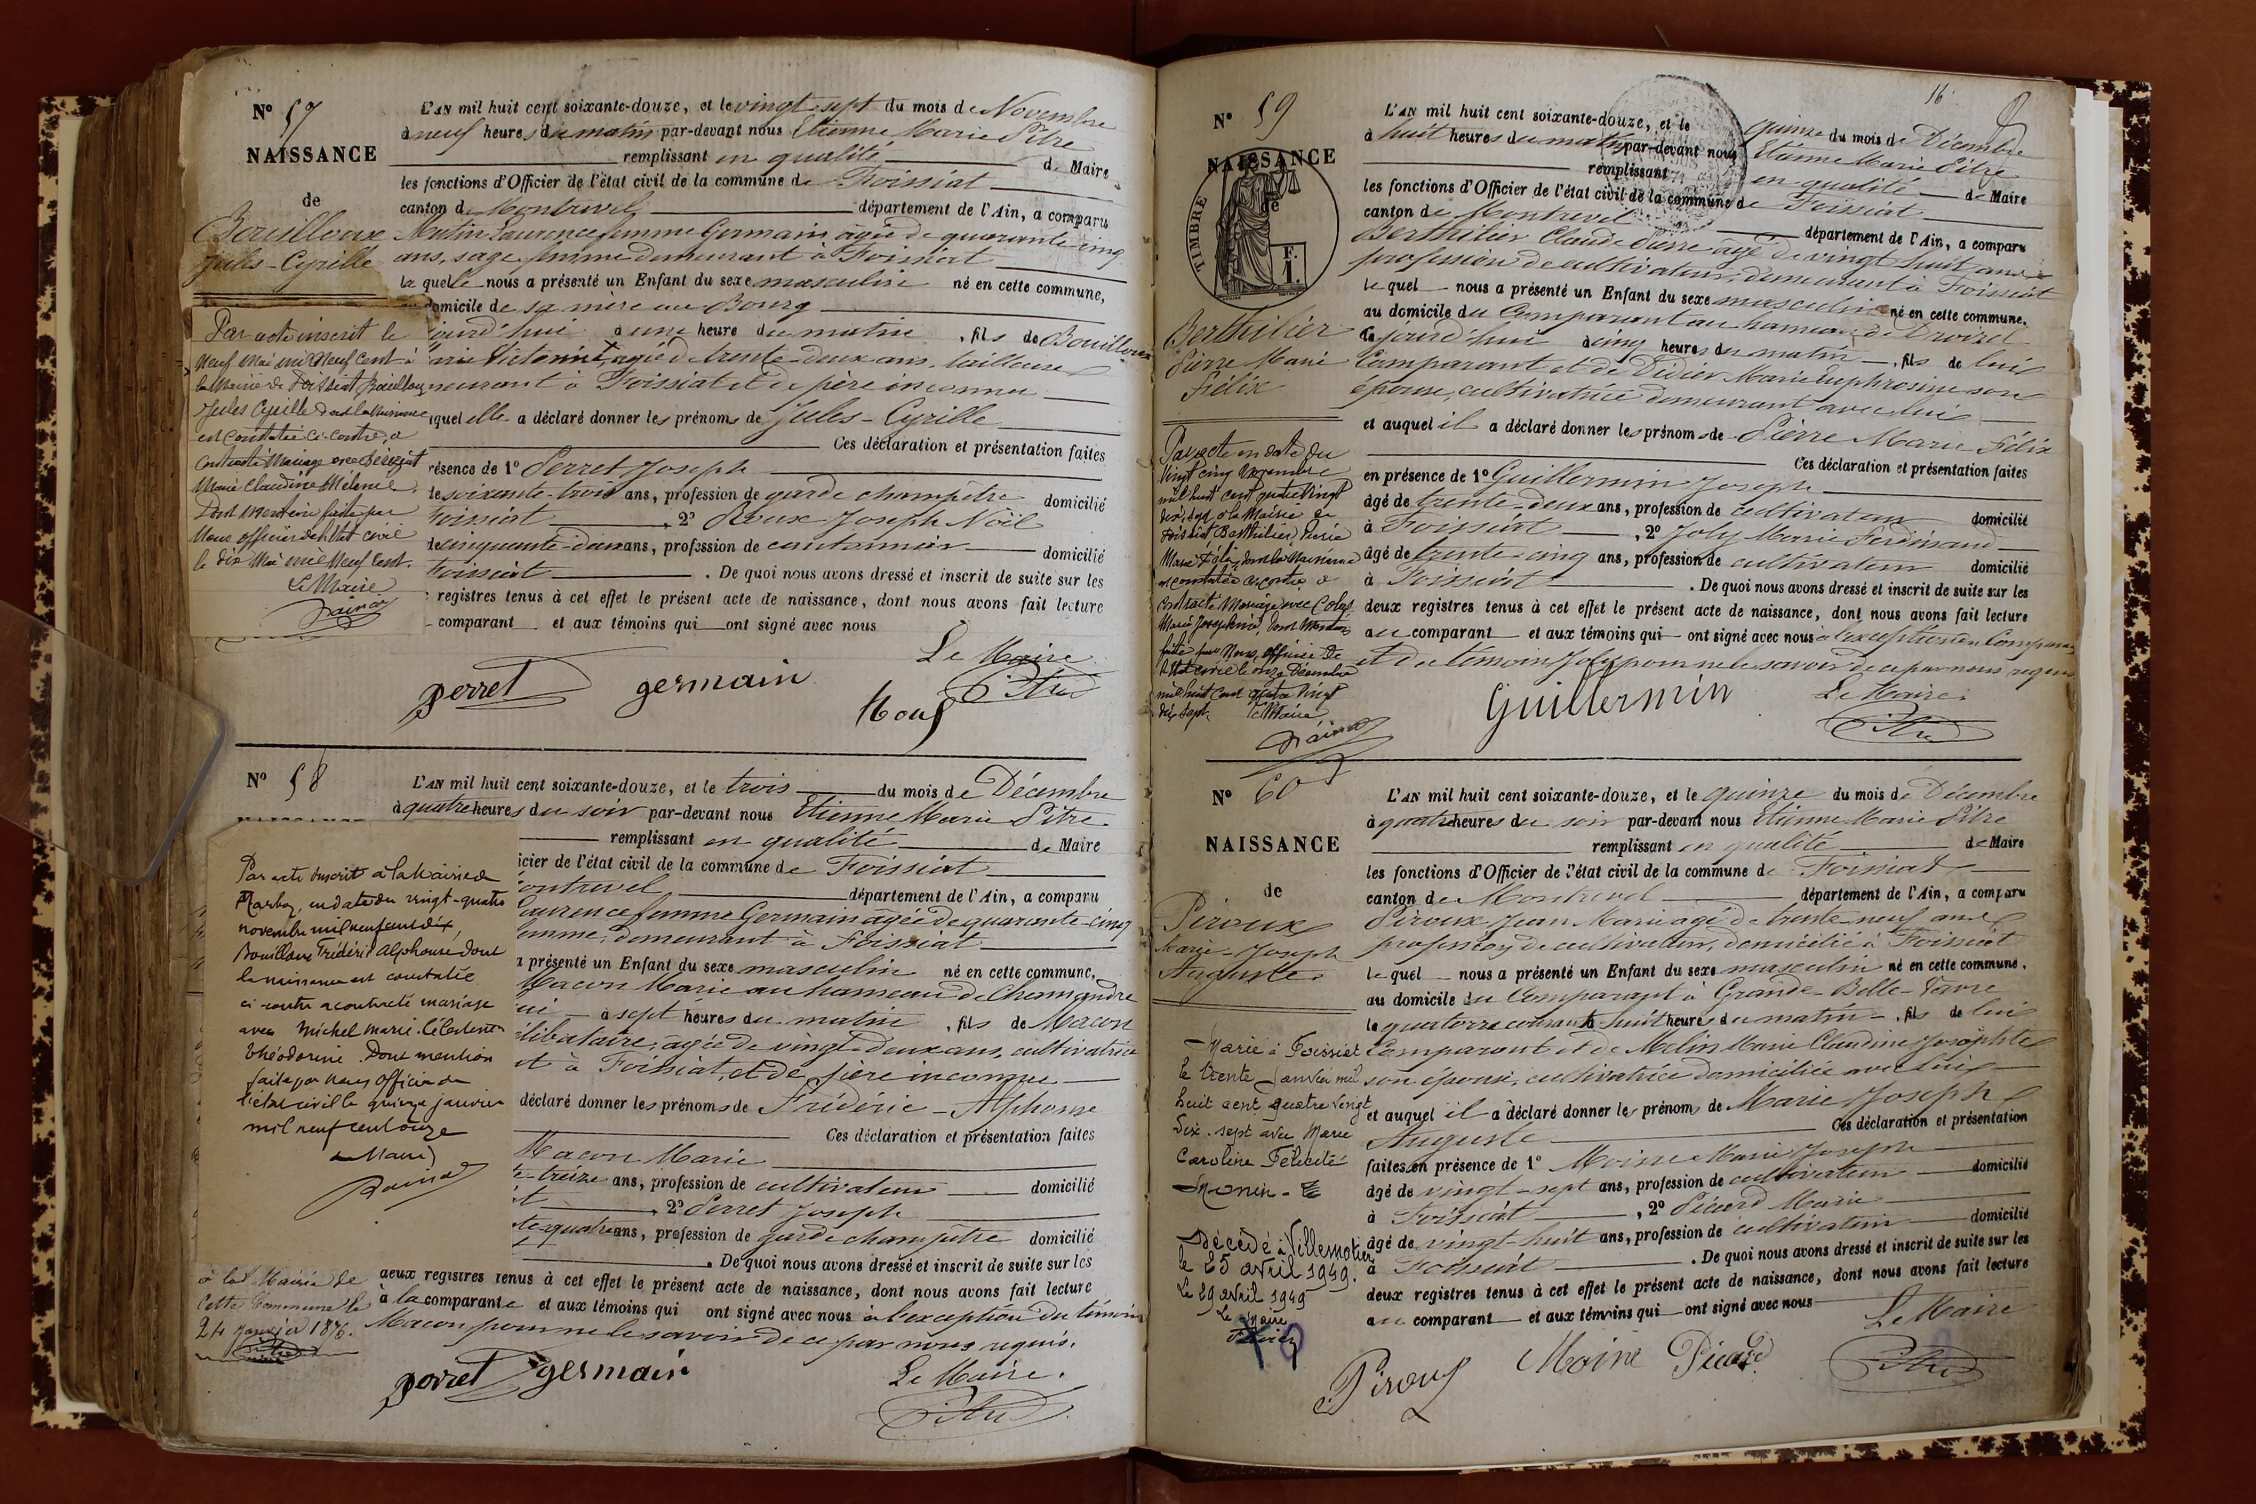 Nº 57
NAISSANCE
de
Bouilloux
Jules-Cyrille
Par acte inscrit le
neuf Mai mil neuf cent à
la Mairie de Foissiat Bouilloux
Jules Cyrille dont la naissance
est constatée ci-contre, a
contracté Mariage avec
Marie Claudine Mélanie
Dont mention faite par
Nous officier de l'Etat civil
le dix Mai mil neuf cent.
Le Maire
L'AN mil huit cent soixante-douze, et le vingt-sept du mois de Novembre
à neuf heures du matin par-devant nous Etienne Marie Pitre
remplissant en qualité de Maire
les fonctions d'Officier de l'état civil de la commune de Foissiat
canton de Montrevel département de l'Ain, a comparu
Laurence femme Germain âgée de quarante-cinq
ans, sage-femme demeurant à Foissiat
la quelle nous a présenté un Enfant du sexe masculin né en cette commune,
domicile de sa mère au Bourg
jourd'hui à une heure du matin, fils de Bouilloux
Victorine, âgée de trente-deux ans, tailleuse
meurant à Foissiat et de père inconnu
quel elle a déclaré donner les prénoms de Jules-Cyrille
Ces déclaration et présentation faites
résence de 1º Perret Joseph
de soixante-trois ans, profession de garde champêtre domicilié
Foissiat, 2º Roux Joseph Noël
de cinquante-deux ans, profession de cantonnier domicilié
Foissiat. De quoi nous avons dressé et inscrit de suite sur les
registres tenus à cet effet le présent acte de naissance, dont nous avons fait lecture
comparant et aux témoins qui ont signé avec nous
Le Maire
perret germain
Roux Pitre
Nº 58
Par acte inscrit à la Mairie de
Marboz, en date du vingt-quatre
novembre mil neuf cent dix,
Bouilloux Frédéric Alphonse dont
la naissance est constatée
ci-contre a contracté mariage
avec Michel Marie Célestine
Théodorine. Dont mention
faite par Nous Officier de
l'état civil le quinze janvier
mil neuf cent onze
Le Maire
à la Mairie de
cette Commune le
24 janvier 1876.
L'AN mil huit cent soixante-douze, et le trois du mois de Décembre
à quatre heures du soir par-devant nous Etienne Marie Pitre
remplissant en qualité de Maire
icier de l'état civil de la commune de Foissiat
ontrevel département de l'Ain, a comparu
Laurence femme Germain âgée de quarante-cinq
emme, demeurant à Foissiat
a présenté un Enfant du sexe masculin né en cette commune,
Macon Marie au hameau de
ui à sept heures du matin, fils de Macon
élibataire, âgée de vingt-deux ans, cultivatrice
nt à Foissiat, et de père inconnu
déclaré donner les prénoms de Frédéric-Alphonse
Ces déclaration et présentation faites
Macon Marie
te-treize ans, profession de cultivateur domicilié
t, 2º Perret Joseph
te-quatre ans, profession de garde champêtre domicilié
. De quoi nous avons dressé et inscrit de suite sur les
deux registres tenus à cet effet le présent acte de naissance, dont nous avons fait lecture
à la comparante et aux témoins qui ont signé avec nous à l'exception du témoin
Macon pour ne le savoir de ce par nous requis.
perret germain
Le Maire.
Pitre
16
Nº 59
NAISSANCE
de
TIMBRE
F.
1.
Berthilier
Pierre Marie
Félix
Par acte en date du
vingt cinq Novembre
mil huit cent quatre vingt
dix sept à la Mairie de
Foissiat Berthilier Pierre
Marie Félix, dont la Naissance
est constatée ci-contre a
contracté Mariage avec Colas
Marie Josephine, Dont Mention
faite par Nous, officier de
l'Etat civil le onze Décembre
mil huit cent quatre vingt
dix sept.
Le Maire
L'AN mil huit cent soixante-douze, et le quinze du mois de Décembre
à huit heures du matin par-devant nous Etienne Marie Pitre
remplissant en qualité de Maire
les fonctions d'Officier de l'état civil de la commune de Foissiat
canton de Montrevel département de l'Ain, a comparu
Berthilier Claude Pierre âgé de vingt huit ans
profession de cultivateur, demeurant à Foissiat
le quel nous a présenté un Enfant du sexe masculin né en cette commune,
au domicile du Comparant au hameau de
ce jourd'hui à cinq heures du matin, fils de lui
Comparant et de Didier Marie Euphrosine son
épouse, cultivatrice demeurant avec lui
et auquel il a déclaré donner les prénoms de Pierre Marie Félix
Ces déclaration et présentation faites
en présence de 1º Guillermin Joseph
âgé de trente-deux ans, profession de cultivateur domicilié
à Foissiat, 2º Joly Marie Ferdinand
âgé de trente-cinq ans, profession de cultivateur domicilié
à Foissiat. De quoi nous avons dressé et inscrit de suite sur les
deux registres tenus à cet effet le présent acte de naissance, dont nous avons fait lecture
au comparant et aux témoins qui ont signé avec nous à l'exception du Comparant
et du témoin Joly pour ne le savoir de ce par nous requis
Guillermin
Le Maire.
Pitre
Nº 60
NAISSANCE
de
Piroux
Marie-Joseph
Auguste.
Marié à Foissiat
le trente Janvier mil
huit cent quatre vingt
dix-sept avec Marie
Caroline Félicité
Monin
Décédé à Villemotier
le 25 avril 1949.
Le 29 avril 1949
Le Maire
L'AN mil huit cent soixante-douze, et le quinze du mois de Décembre
à quatre heures du soir par-devant nous Etienne Marie Pitre
remplissant en qualité de Maire
les fonctions d'Officier de l'état civil de la commune de Foissiat
canton de Montrevel département de l'Ain, a comparu
Piroux Jean Marie âgé de trente-neuf ans
profession de cultivateur, domicilié à Foissiat
le quel nous a présenté un Enfant du sexe masculin né en cette commune,
au domicile du Comparant à Grande-Belle-Vavre
le quatorze courant à huit heures du matin, fils de lui
Comparant et de Melin Marie Claudine Josephte
son épouse, cultivatrice domiciliée avec lui
et auquel il a déclaré donner les prénoms de Marie Joseph
Auguste Ces déclaration et présentation
faites en présence de 1º Moine Marie Joseph
âgé de vingt-sept ans, profession de cultivateur domicilié
à Foissiat, 2º Picard Marie
âgé de vingt-huit ans, profession de cultivateur domicilié
à Foissiat. De quoi nous avons dressé et inscrit de suite sur les
deux registres tenus à cet effet le présent acte de naissance, dont nous avons fait lecture
au comparant et aux témoins qui ont signé avec nous
Le Maire
Piroux Moine Picard Pitre